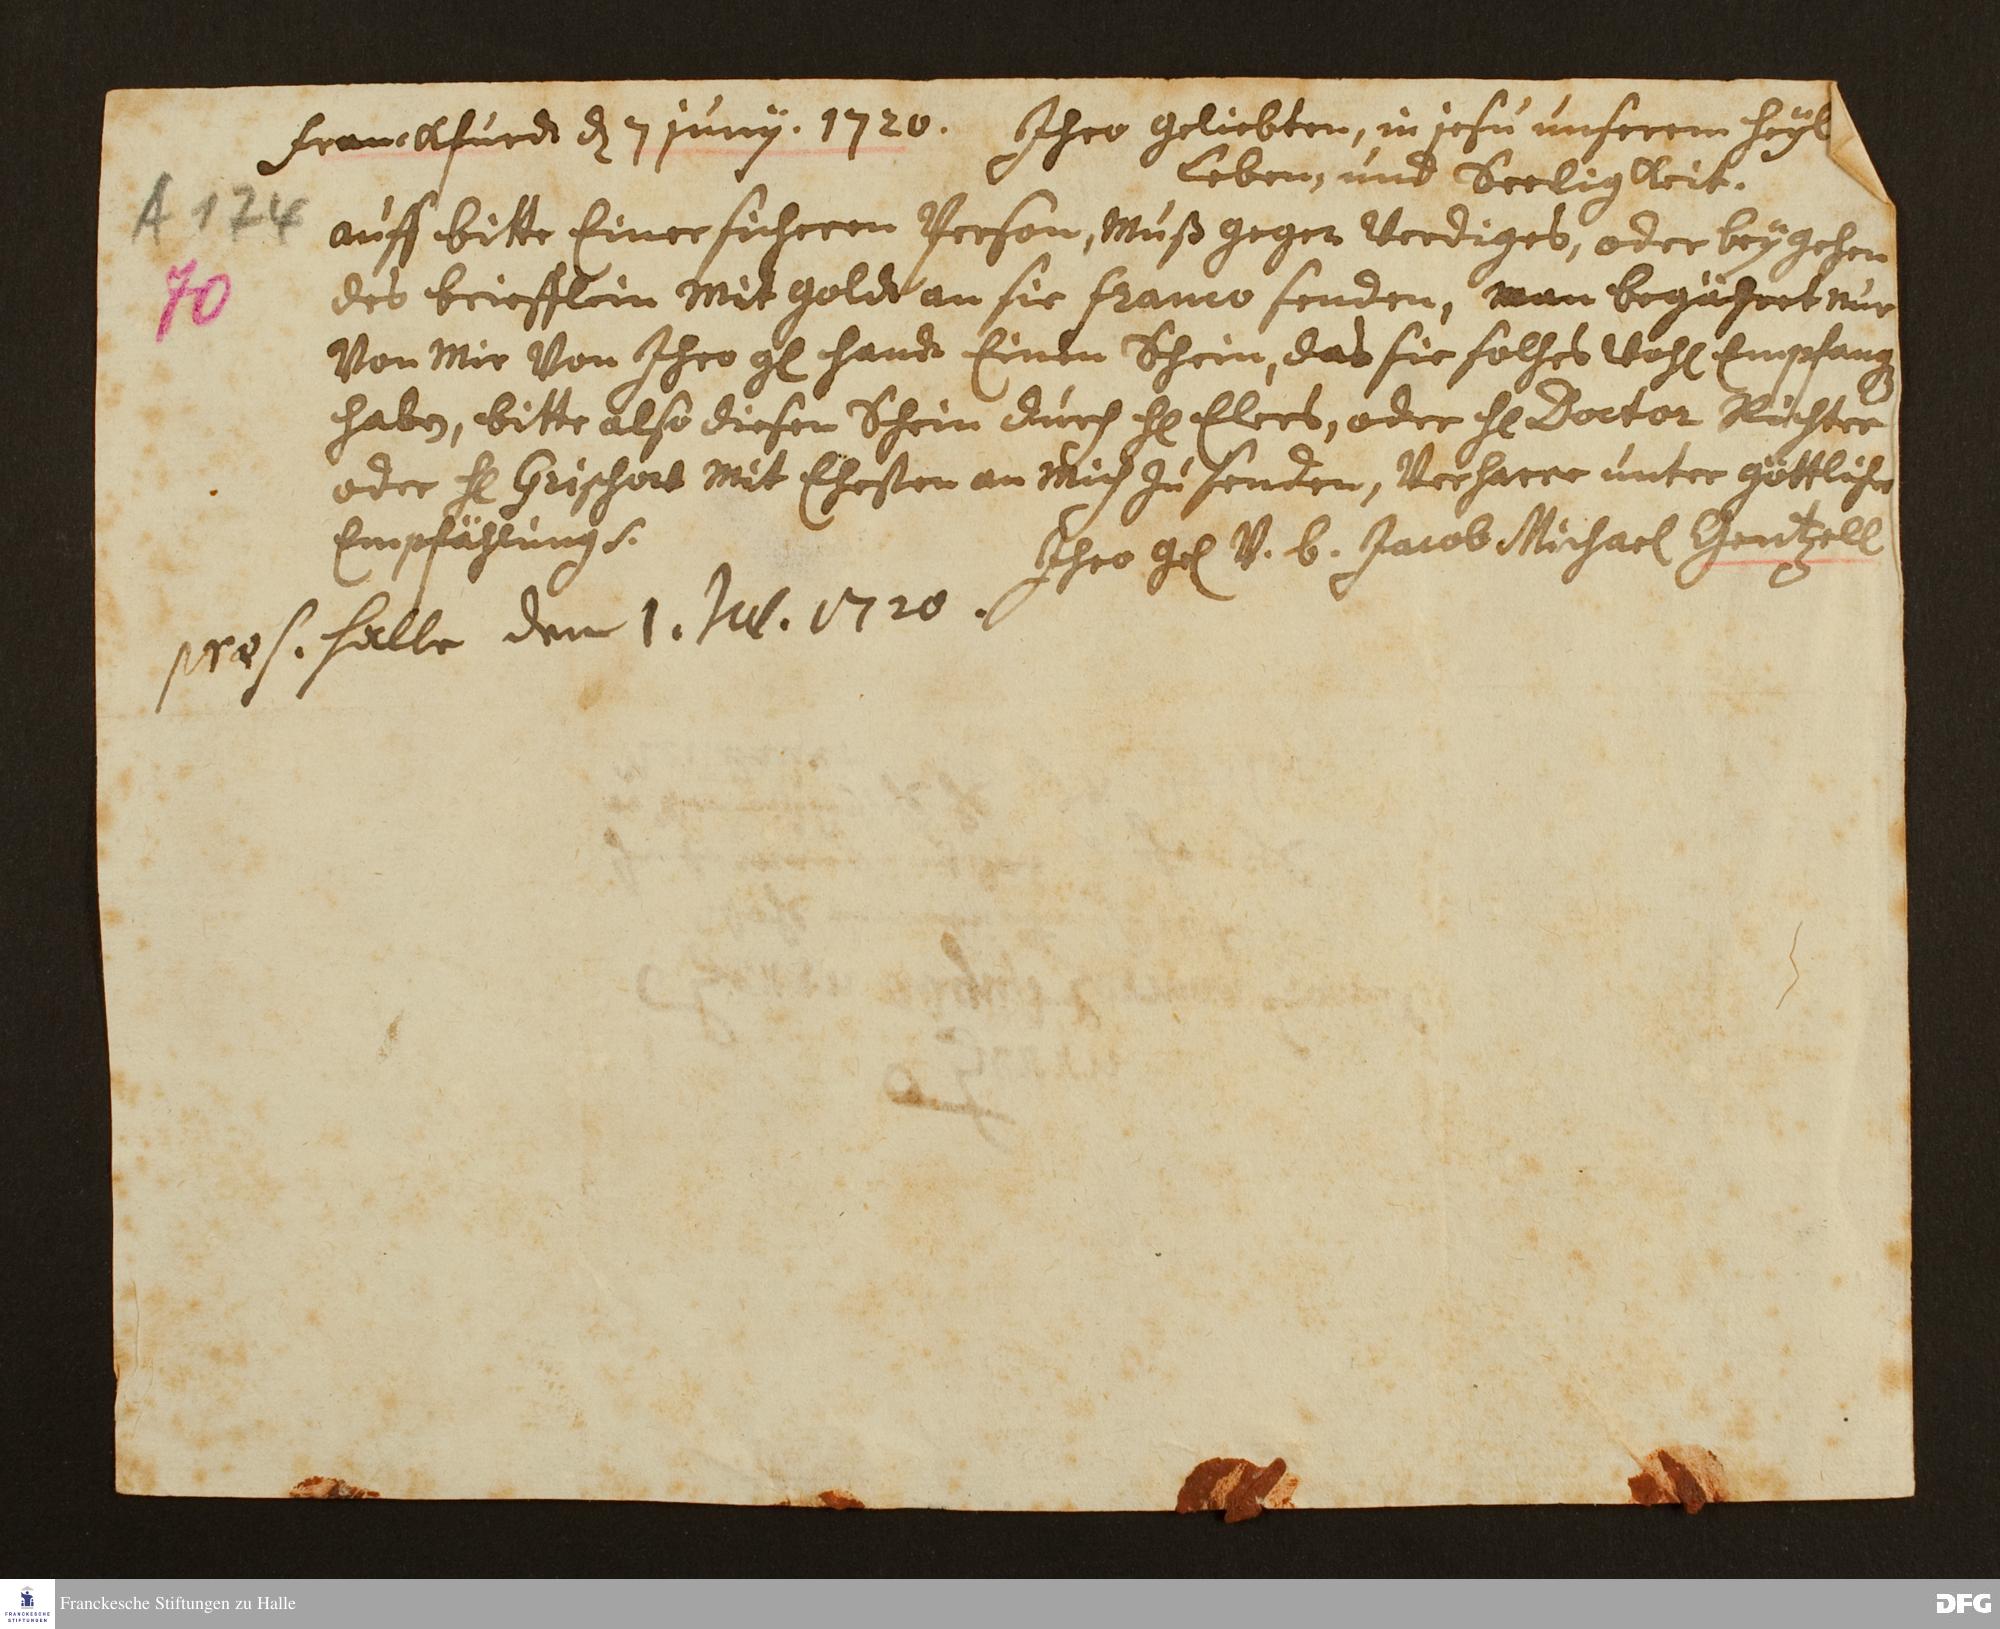 Franckfurdt d 7 junÿ. 1720. Ihro geliebten, in jesu unserem heÿl
Leben, und Seeligkeit.
A 174
auff bitte Einer sicheren Person, Muß gegen Verdiges, oder beÿ gehen
70
des briefflein Mit goldt an sie franco senden, man begähret nur
Von Mir Von Ihro gl handt Einen Schein, das sie solches Wohl Empfang
haben, bitte also diesen Schein durch hl Elers, oder hl Doctor Richter
oder hl Grischow Mit Ehesten an Mich zu senden, Verharre unter göttlicher
Empfählung s.
Ihro gel V. b. Jacob Michael Gentzell
præs. Halle den 1. Jul. 1720.
FRANCKESCHE
STIFTUNGEN
Franckesche Stiftungen zu Halle
DFG